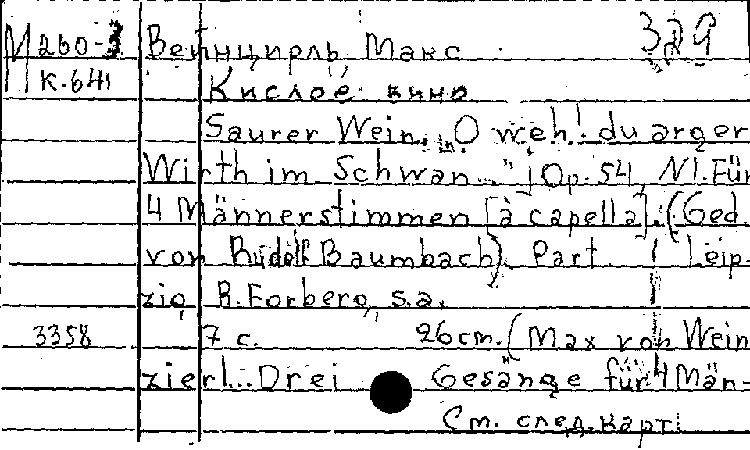 М260-3 Вейнцирль, Макс 329
К.641 Кислое вино
Saurer Wein. „O weh! du arger
Wirth im Schwan...“ Op. 54, N1. Für
4 Männerstimmen [à capella]. (Ged.
von Rudolf Baumbach). Part. Leip-
zig, R. Forberg, s.a.
3358 7 с. 26 cm. (Max von Wein
zierl. Drei Gesänge für 4 Män-
См. след. карт.